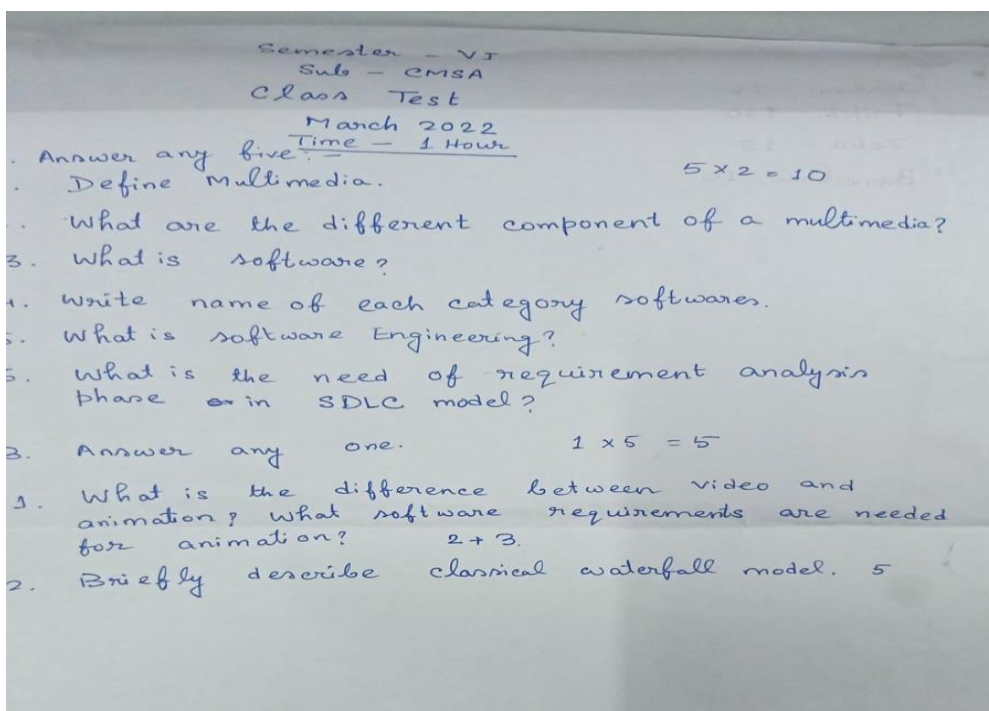 Semester - VI
Sub - CMSA
Class Test
March 2022
Time - 1 Hour
. Answer any five :-
5 × 2 = 10
. Define Multimedia.
. What are the different component of a multimedia?
3. What is software?
4. Write name of each category softwares.
5. What is software Engineering?
What is the need of requirement analysis
phase in SDLC model?
B. Answer any one. 1 × 5 = 5
1. What is the difference between video and
animation? What software requirements are needed
for animation? 2 + 3.
2. Briefly describe classical waterfall model. 5